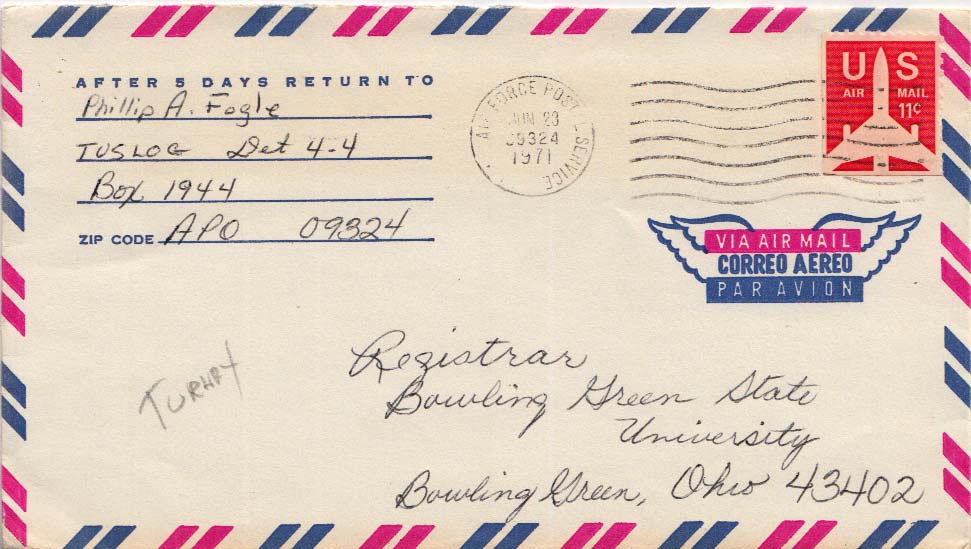 AFTER 5 DAYS RETURN TO
Phillip A. Fogle
TUSLOG Det 4-4
Box 1944
ZIP CODE APO 09324
AIR FORCE POSTAL SERVICE
JUN 23
09324
1971
US
AIR MAIL
11¢
VIA AIR MAIL
CORREO AEREO
PAR AVION
Registrar
Bowling Green State
University
Bowling Green, Ohio 43402